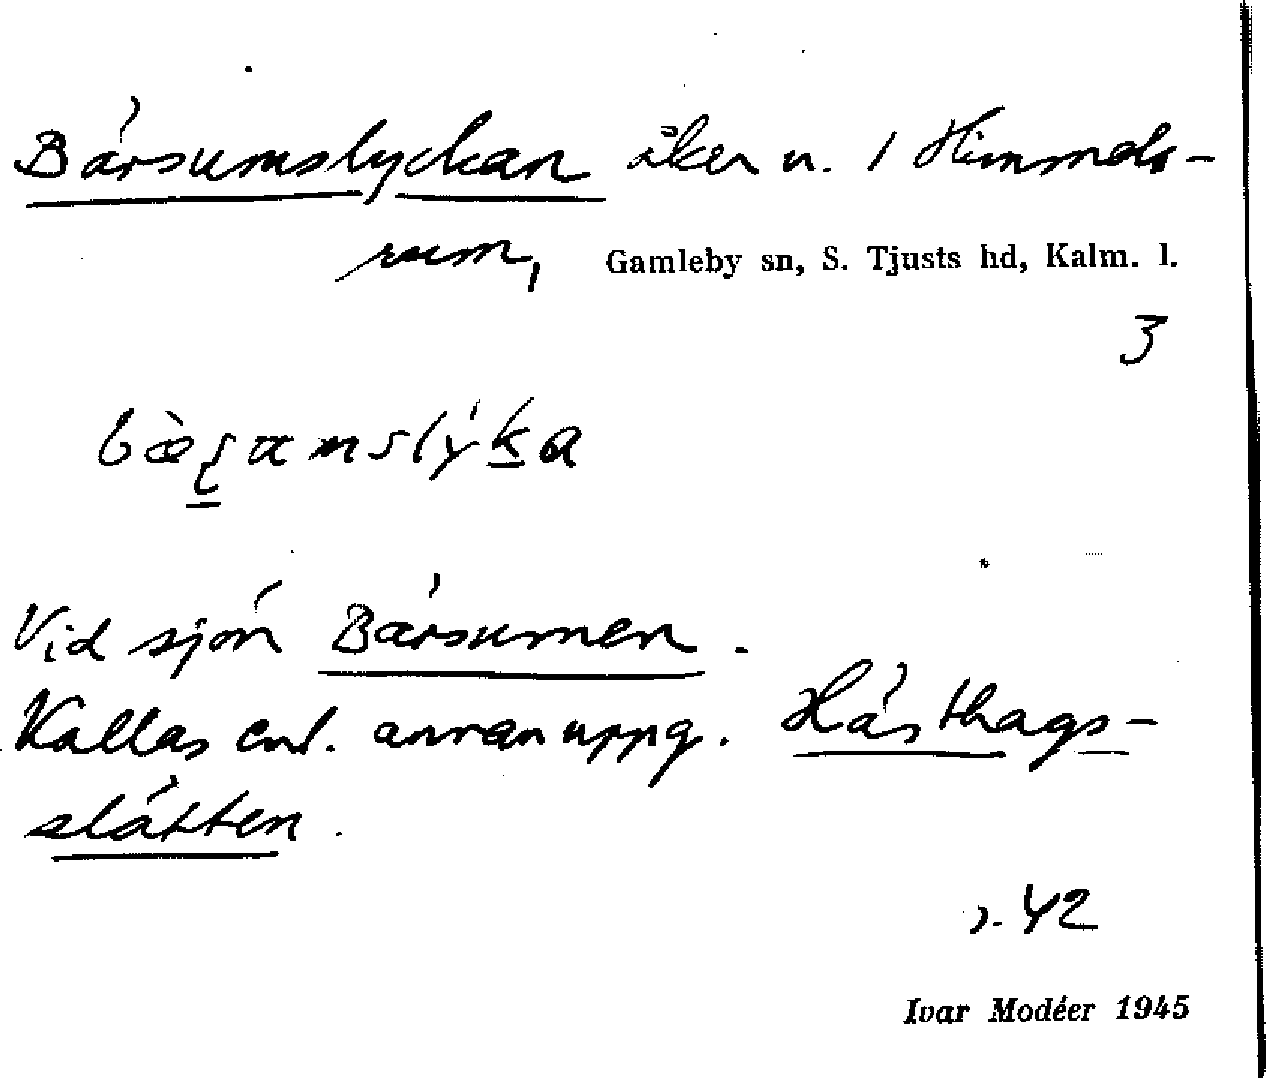 Bärsumslyckan åker n. 1 Himmels-
rum, Gamleby sn, S. Tjusts hd, Kalm. l.
3
Vid sjön Bärsumen.
Kallas enl. annan uppg. Hästhags-
slätten.
s. 42
Ivar Modéer 1945